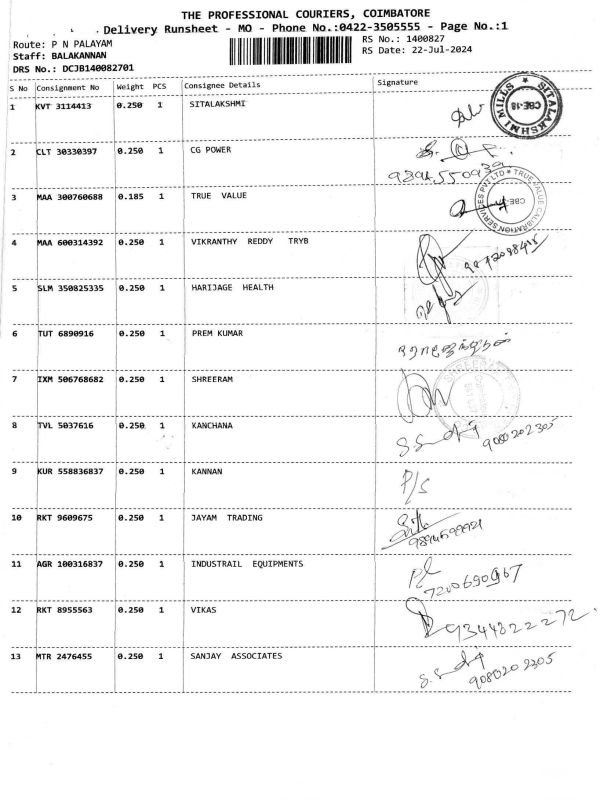 THE PROFESSIONAL COURIERS, COIMBATORE
Delivery Runsheet - MO - Phone No.:0422-3505555 - Page No.:1
Route: P N PALAYAM
RS No.: 1400827
Staff: BALAKANNAN
RS Date: 22-Jul-2024
DRS No.: DCJB140082701
S No Consignment No Weight PCS Consignee Details Signature
1 KVT 3114413 0.250 1 SITALAKSHMI
SITALAKSHMI MILLS CBE-18
2 CLT 30330397 0.250 1 CG POWER
3 MAA 300760688 0.185 1 TRUE VALUE
TRUE VALUE CALIBRATION SERVICES PVT LTD
4 MAA 600314392 0.250 1 VIKRANTHY REDDY TRYB
5 SLM 350825335 0.250 1 HARIJAGE HEALTH
6 TUT 6890916 0.250 1 PREM KUMAR
7 IXM 506768682 0.250 1 SHREERAM
8 TVL 5037616 0.250 1 KANCHANA
9080202305
9 KUR 558836837 0.250 1 KANNAN
P/S
10 RKT 9609675 0.250 1 JAYAM TRADING
11 AGR 100316837 0.250 1 INDUSTRAIL EQUIPMENTS
7200690967
12 RKT 8955563 0.250 1 VIKAS
9344822272
13 MTR 2476455 0.250 1 SANJAY ASSOCIATES
9080202305